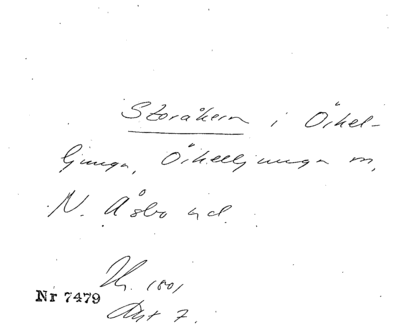 Storåkern i Örkel-
ljunga, Örkelljunga sn,
N. Åsbo hd.
1801
Nr 7479
Akt 7.